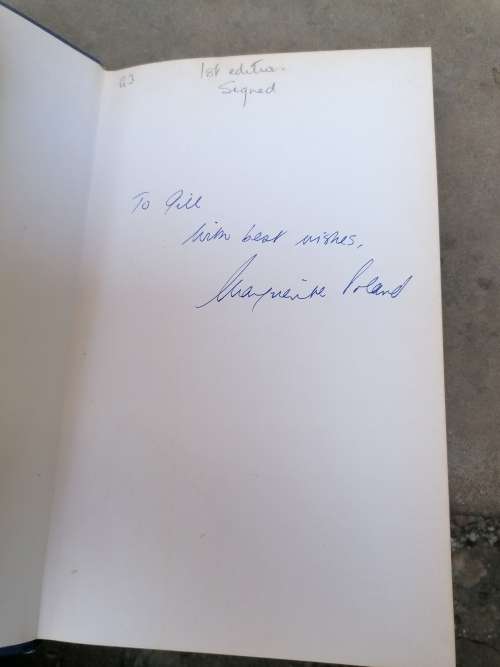 1st edition.
Signed
To Gill
With best wishes,
Marguerite Poland